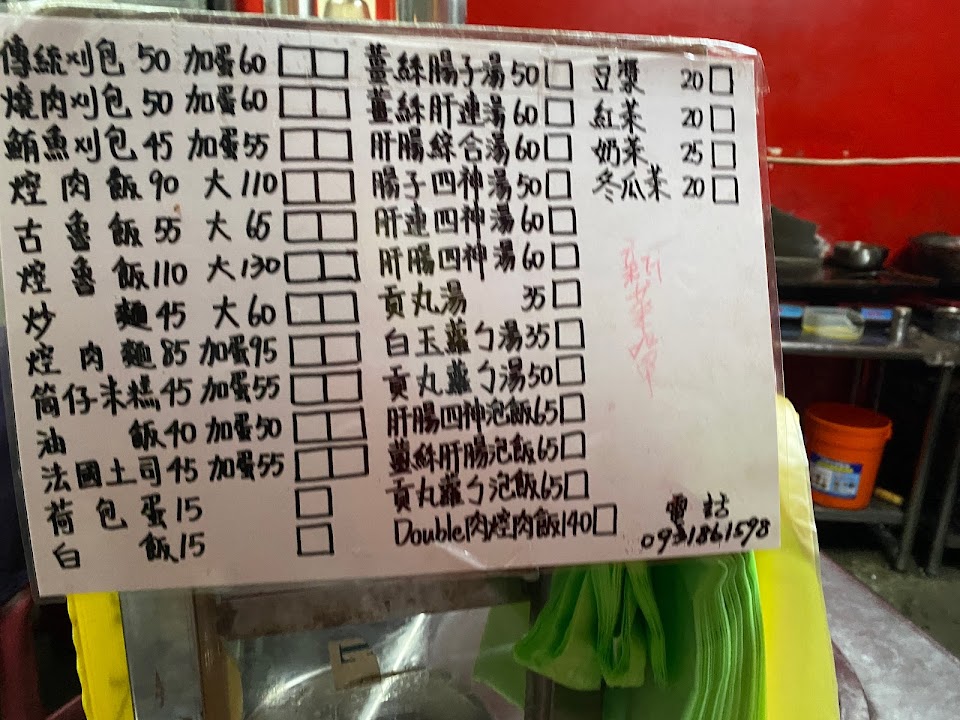 傳統刈包 50 加蛋60
燒肉刈包 50 加蛋60
鮪魚刈包 45 加蛋55
焢肉飯90 大110
古魯飯55 大65
焢魯飯110 大130
炒麵45 大60
焢肉麵85 加蛋95
筒仔米糕45 加蛋55
油飯40 加蛋50
法國土司45 加蛋55
荷包蛋15
白飯15
薑絲腸子湯50
薑絲肝連湯60
肝腸綜合湯60
腸子四神湯50
肝連四神湯60
肝腸四神湯60
貢丸湯 35
白玉蘿勺湯35
貢丸蘿勺湯50
肝腸四神泡飯65
薑絲肝腸泡飯65
貢丸蘿勺泡飯65
Double肉焢肉飯140
豆漿 20
紅茶 20
奶茶 25
冬瓜茶 20
新菜單
電話
0931861598